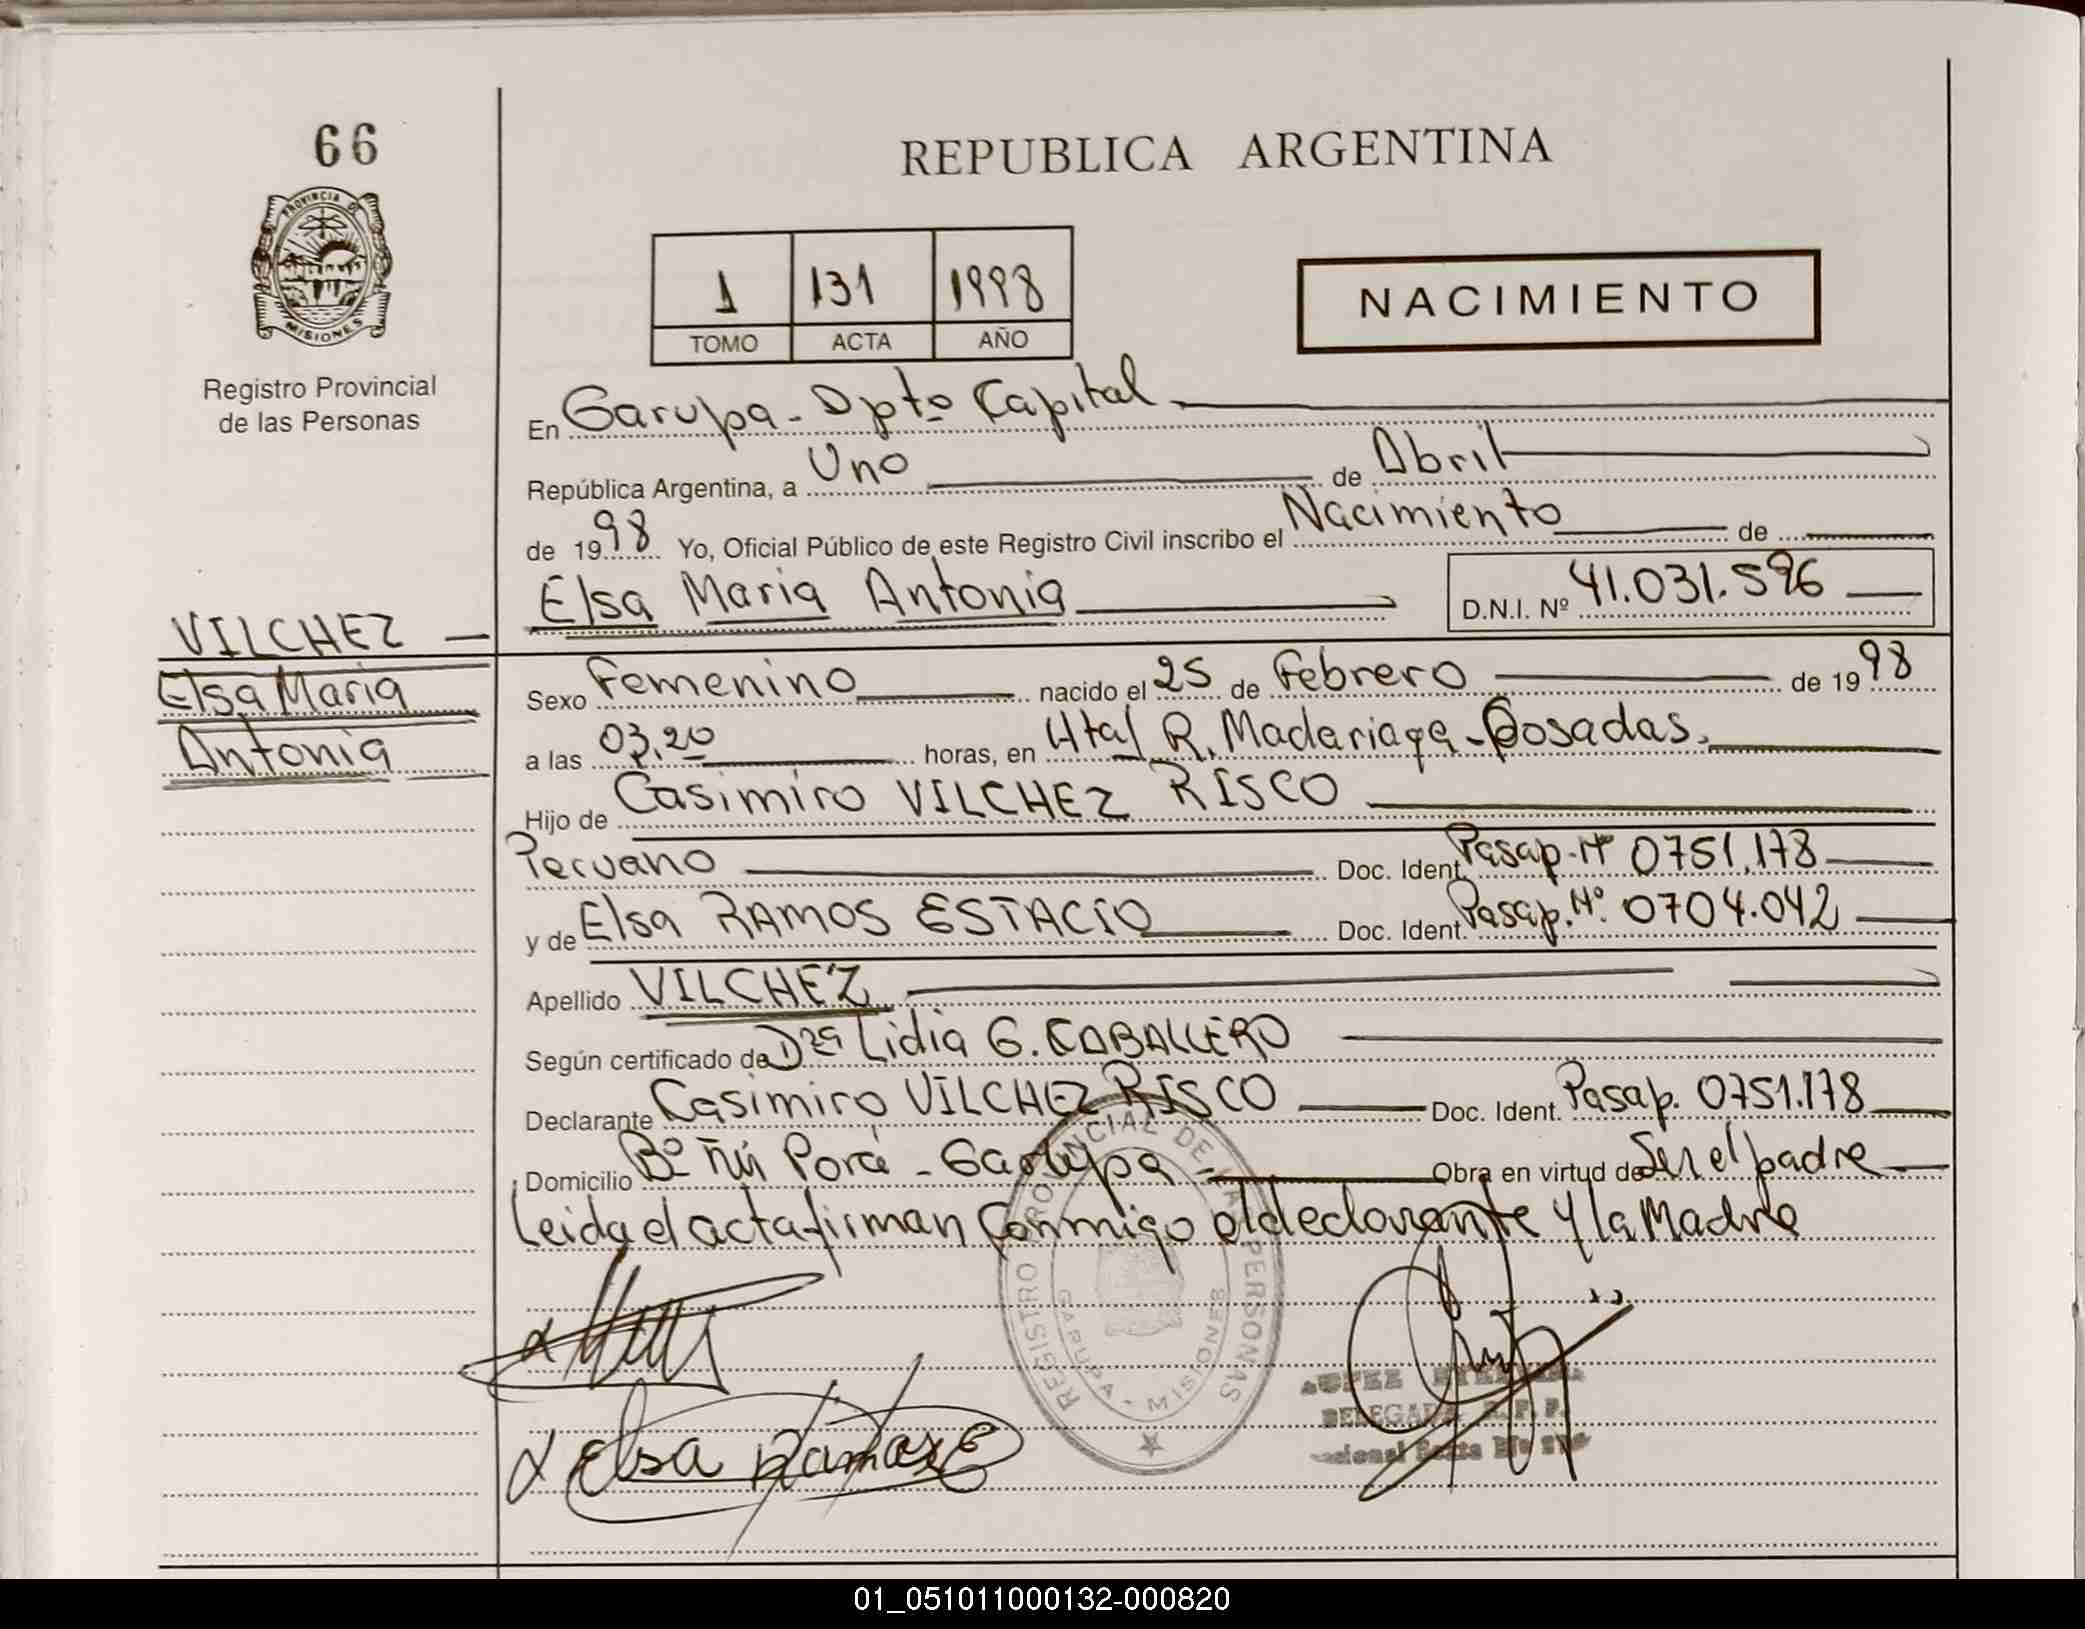 66
REPUBLICA ARGENTINA
PROVINCIA DE
MISIONES
Registro Provincial
de las Personas
1 131 1998
TOMO ACTA AÑO
NACIMIENTO
En Garupa - Dpto Capital
República Argentina, a Uno de Abril
de 1998 Yo, Oficial Público de este Registro Civil inscribo el Nacimiento de
Elsa Maria Antonia D.N.I. Nº 41.031.596
VILCHEZ
Elsa Maria
Antonia
Sexo Femenino nacido el 25 de Febrero de 1998
a las 03,20 horas, en Htal R. Madariaga - Posadas.
Hijo de Casimiro VILCHEZ RISCO
Peruano Doc. Ident. Pasap. Nº 0751.178
y de Elsa RAMOS ESTACIO Doc. Ident. Pasap. Nº. 0704.042
Apellido VILCHEZ
Según certificado de Dra Lidia G. CABALLERO
Declarante Casimiro VILCHEZ RISCO Doc. Ident. Pasap. 0751.178
Domicilio Bº Ñú Porá - Garupa Obra en virtud de Ser el padre
Leida el acta firman conmigo el declarante y la Madre
REGISTRO PROVINCIAL DE LAS PERSONAS
GARUPA - MISIONES
Elsa Ramos E
DELEGADA R. P. P.
01_051011000132-000820